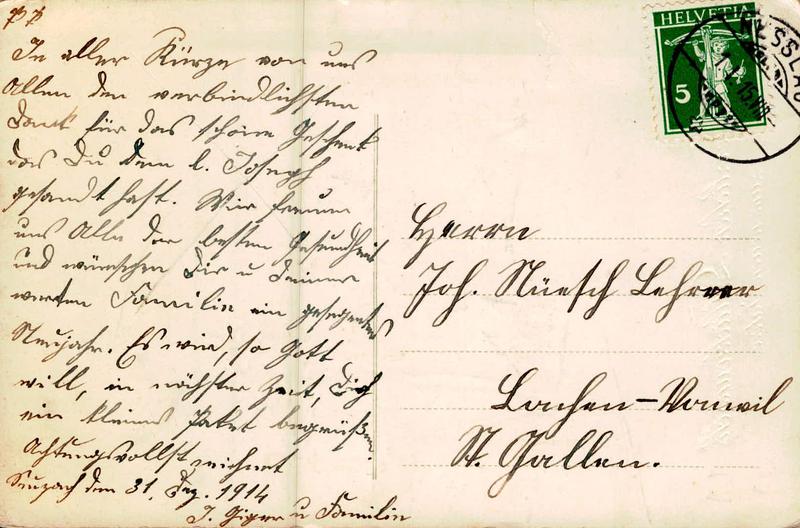 PP
In aller Kürze von uns
Allen den verbindlichsten
Dank für das schöne Geschenk
das Du dem l. Joseph
gesandt hast. Wir freuen
uns Alle der besten Gesundheit
und wünschen Dir u Deiner
werten Familie ein gesegnetes
Neujahr. Es wird, so Gott
will, in nächster Zeit, Dich
ein kleines Paket begrüßen.
Achtungsvollst zeichnet
Seuzach den 31. Dez. 1914
J. Giger u Familie
HELVETIA
5
Herrn
Joh. Nüesch Lehrer
Lachen-Vonwil
St. Gallen.